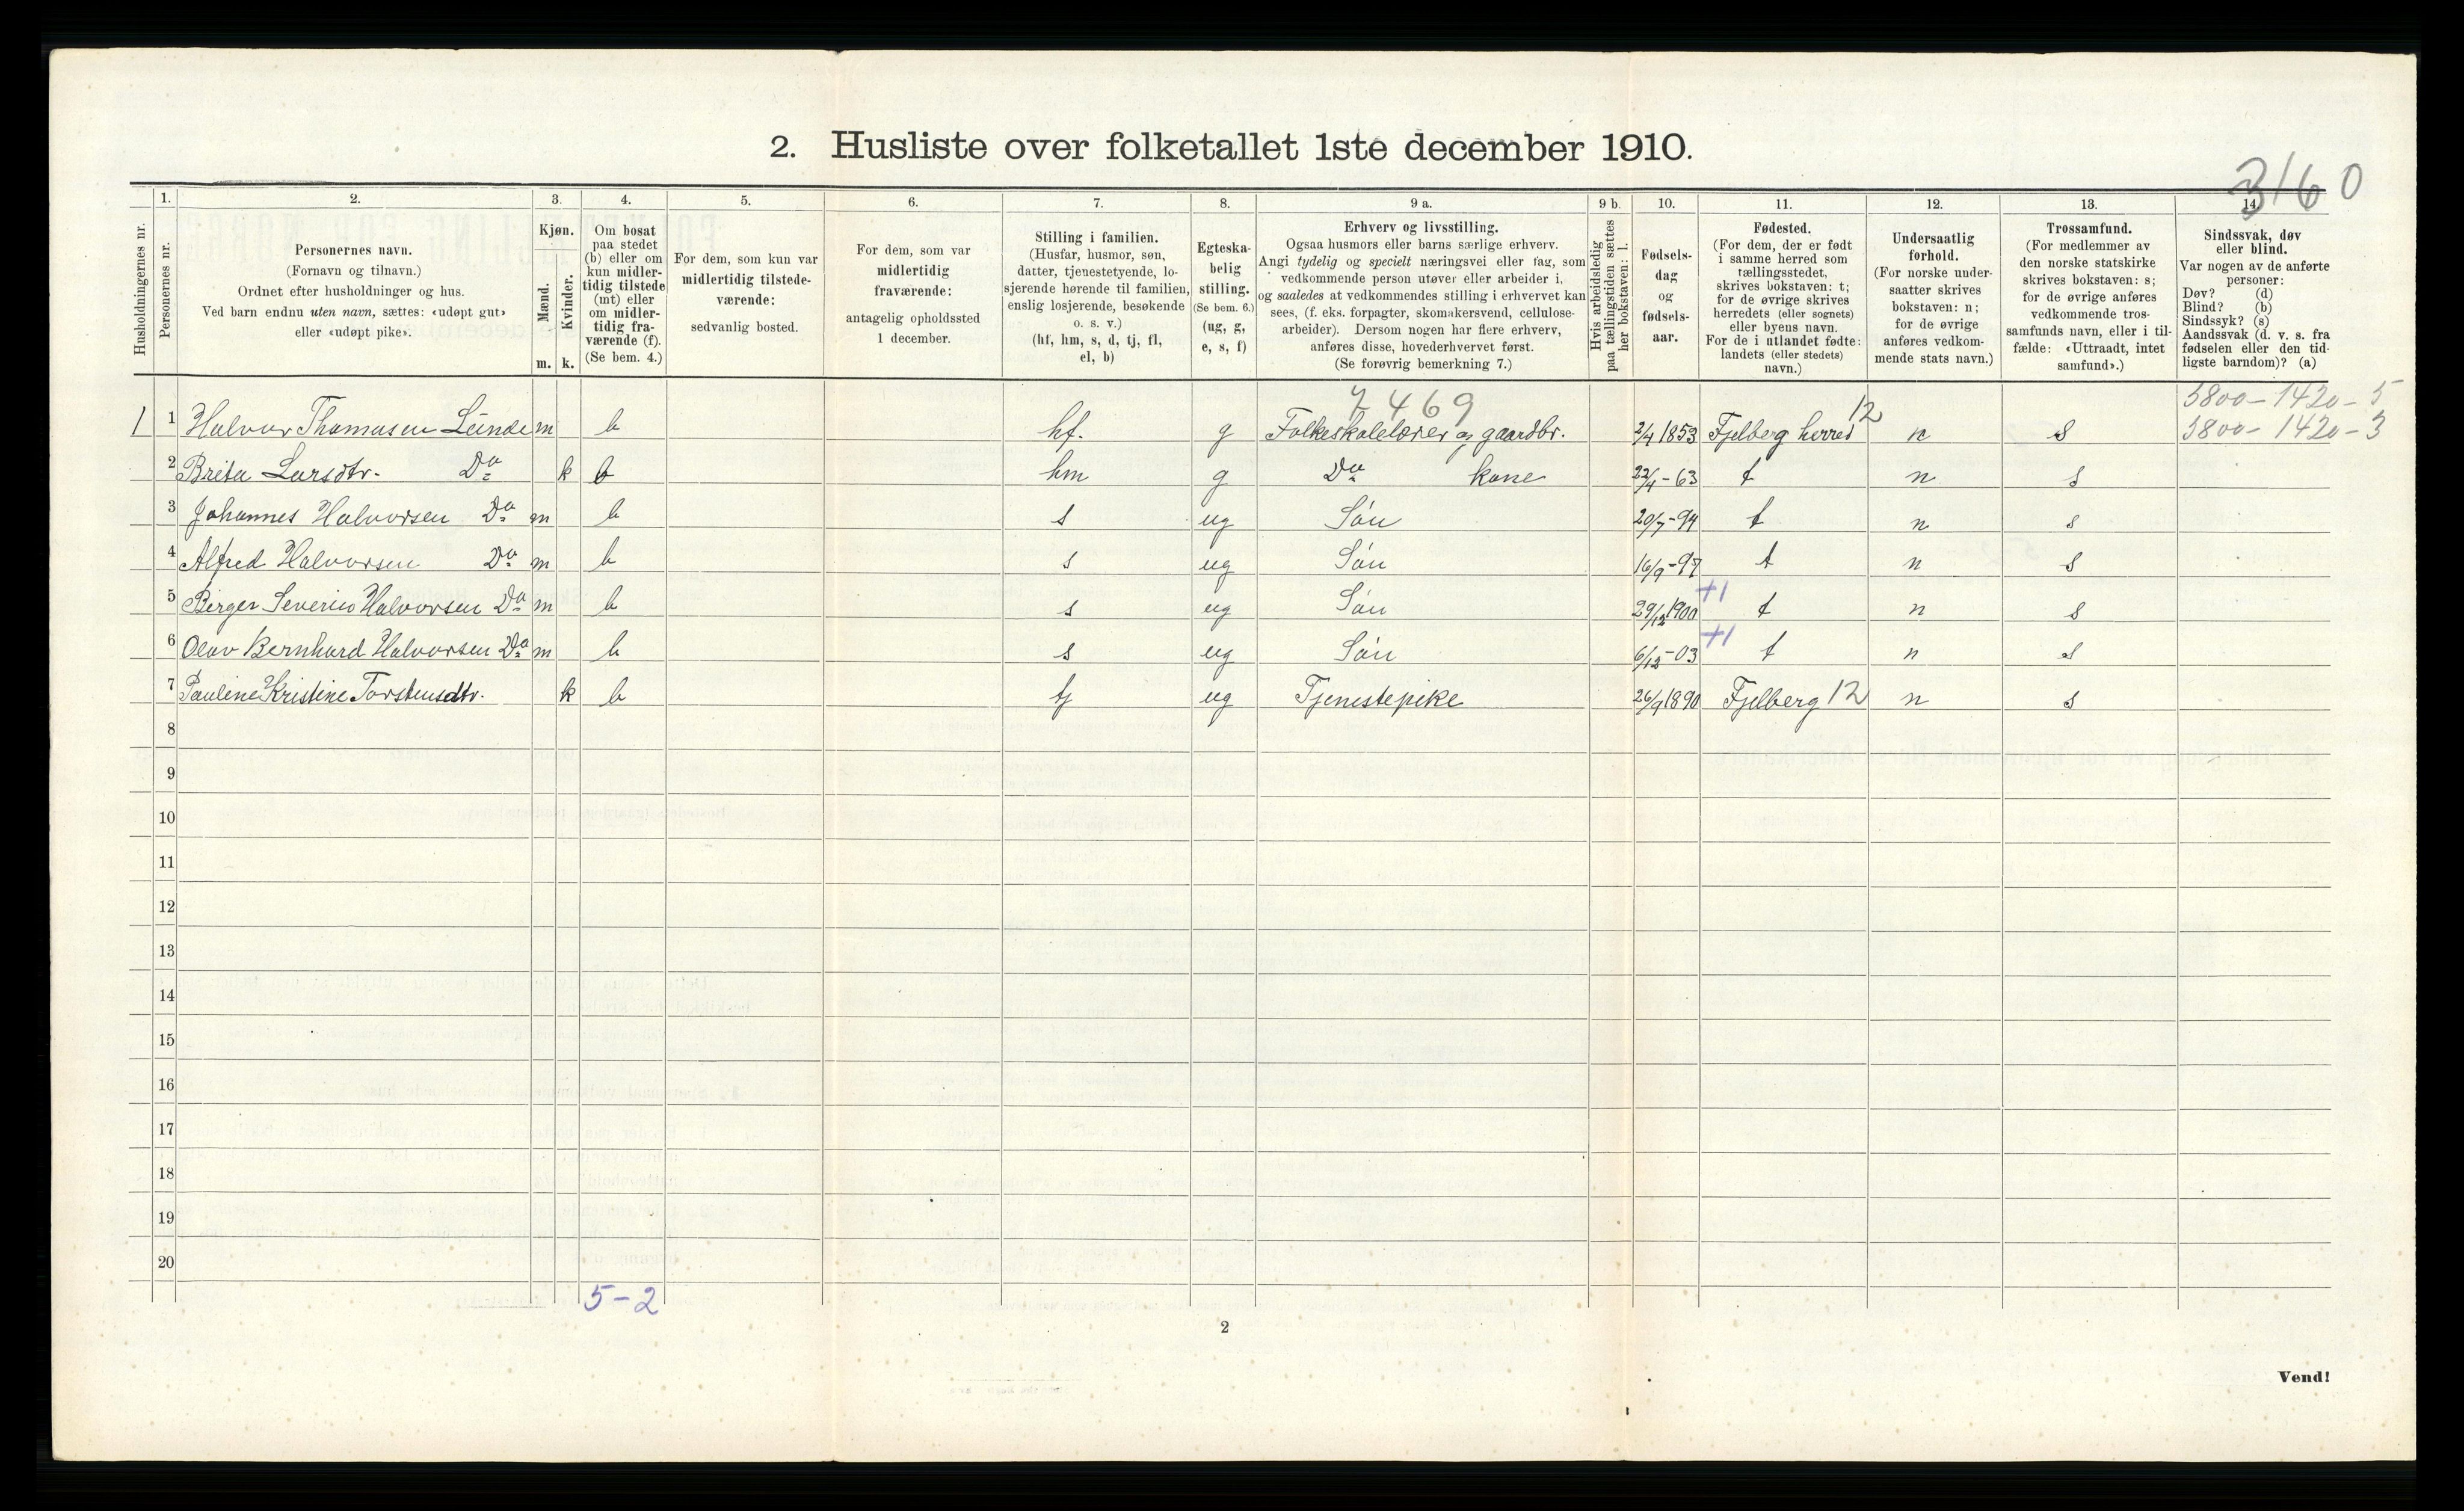 2. Husliste over folketallet 1ste december 1910.
3160
1. 2. 3. 4. 5. 6. 7. 8. 9 a. 9 b. 10. 11. 12. 13. 14.
Husholdningernes nr.
Personernes nr.
Personernes navn.
(Fornavn og tilnavn.)
Ordnet efter husholdninger og hus.
Ved barn endnu uten navn, sættes: «udøpt gut»
eller «udøpt pike».
Kjøn.
Mænd.
Kvinder.
m. k.
Om bosat
paa stedet
(b) eller om
kun midler-
tidig tilstede
(mt) eller
om midler-
tidig fra-
værende (f).
(Se bem. 4.)
For dem, som kun var
midlertidig tilstede-
værende:
sedvanlig bosted.
For dem, som var
midlertidig
fraværende:
antagelig opholdssted
1 december.
Stilling i familien.
(Husfar, husmor, søn,
datter, tjenestetyende, lo-
sjerende hørende til familien,
enslig losjerende, besøkende
o. s. v.)
(hf, hm, s, d, tj, fl,
el, b)
Egteska-
belig
stilling.
(Se bem. 6.)
(ug, g,
e, s, f)
Erhverv og livsstilling.
Ogsaa husmors eller barns særlige erhverv.
Angi tydelig og specielt næringsvei eller fag, som
vedkommende person utøver eller arbeider i,
og saaledes at vedkommendes stilling i erhvervet kan
sees, (f. eks. forpagter, skomakersvend, cellulose-
arbeider). Dersom nogen har flere erhverv,
anføres disse, hovederhvervet først.
(Se forøvrig bemerkning 7.)
Hvis arbeidsledig
paa tællingstiden sættes
her bokstaven: l.
Fødsels-
dag
og
fødsels-
aar.
Fødested.
(For dem, der er født
i samme herred som
tællingsstedet,
skrives bokstaven: t;
for de øvrige skrives
herredets (eller sognets)
eller byens navn.
For de i utlandet fødte:
landets (eller stedets)
navn.)
Undersaatlig
forhold.
(For norske under-
saatter skrives
bokstaven: n;
for de øvrige
anføres vedkom-
mende stats navn.)
Trossamfund.
(For medlemmer av
den norske statskirke
skrives bokstaven: s;
for de øvrige anføres
vedkommende tros-
samfunds navn, eller i til-
fælde: «Uttraadt, intet
samfund».)
Sindssvak, døv
eller blind.
Var nogen av de anførte
personer:
Døv? (d)
Blind? (b)
Sindssyk? (s)
Aandssvak (d. v. s. fra
fødselen eller den tid-
ligste barndom)? (a)
7469 12 3800-1420-5
1 1 Halvor Thomasen Lunde m b hf. g Folkeskolelærer og gaardbr. 2/4 1853 Fjelberg herred n s 3800-1420-3
2 Brita Larsdtr. Do k b hm g Do kone 22/4-63 t n s
3 Johannes Halvorsen Do m b s ug Søn 20/7-94 t n s
4 Alfred Halvorsen Do m b s ug Søn 16/9-97 t n s
5 Birger Severin Halvorsen Do m b s ug Søn 29/12 1900 +1 t n s
6 Olav Bernhard Halvorsen Do m b s ug Søn 6/12-03 +1 t n s
7 Pauline Kristine Torstensdtr. k b tj ug Tjenestepike 26/9 1890 Fjelberg 12 n s
8
9
10
11
12
13
14
15
16
17
18
19
20
5-2
2
Vend!